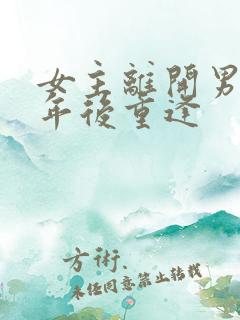 女主離開男
年後重逢
方術.
未经同意禁止转载